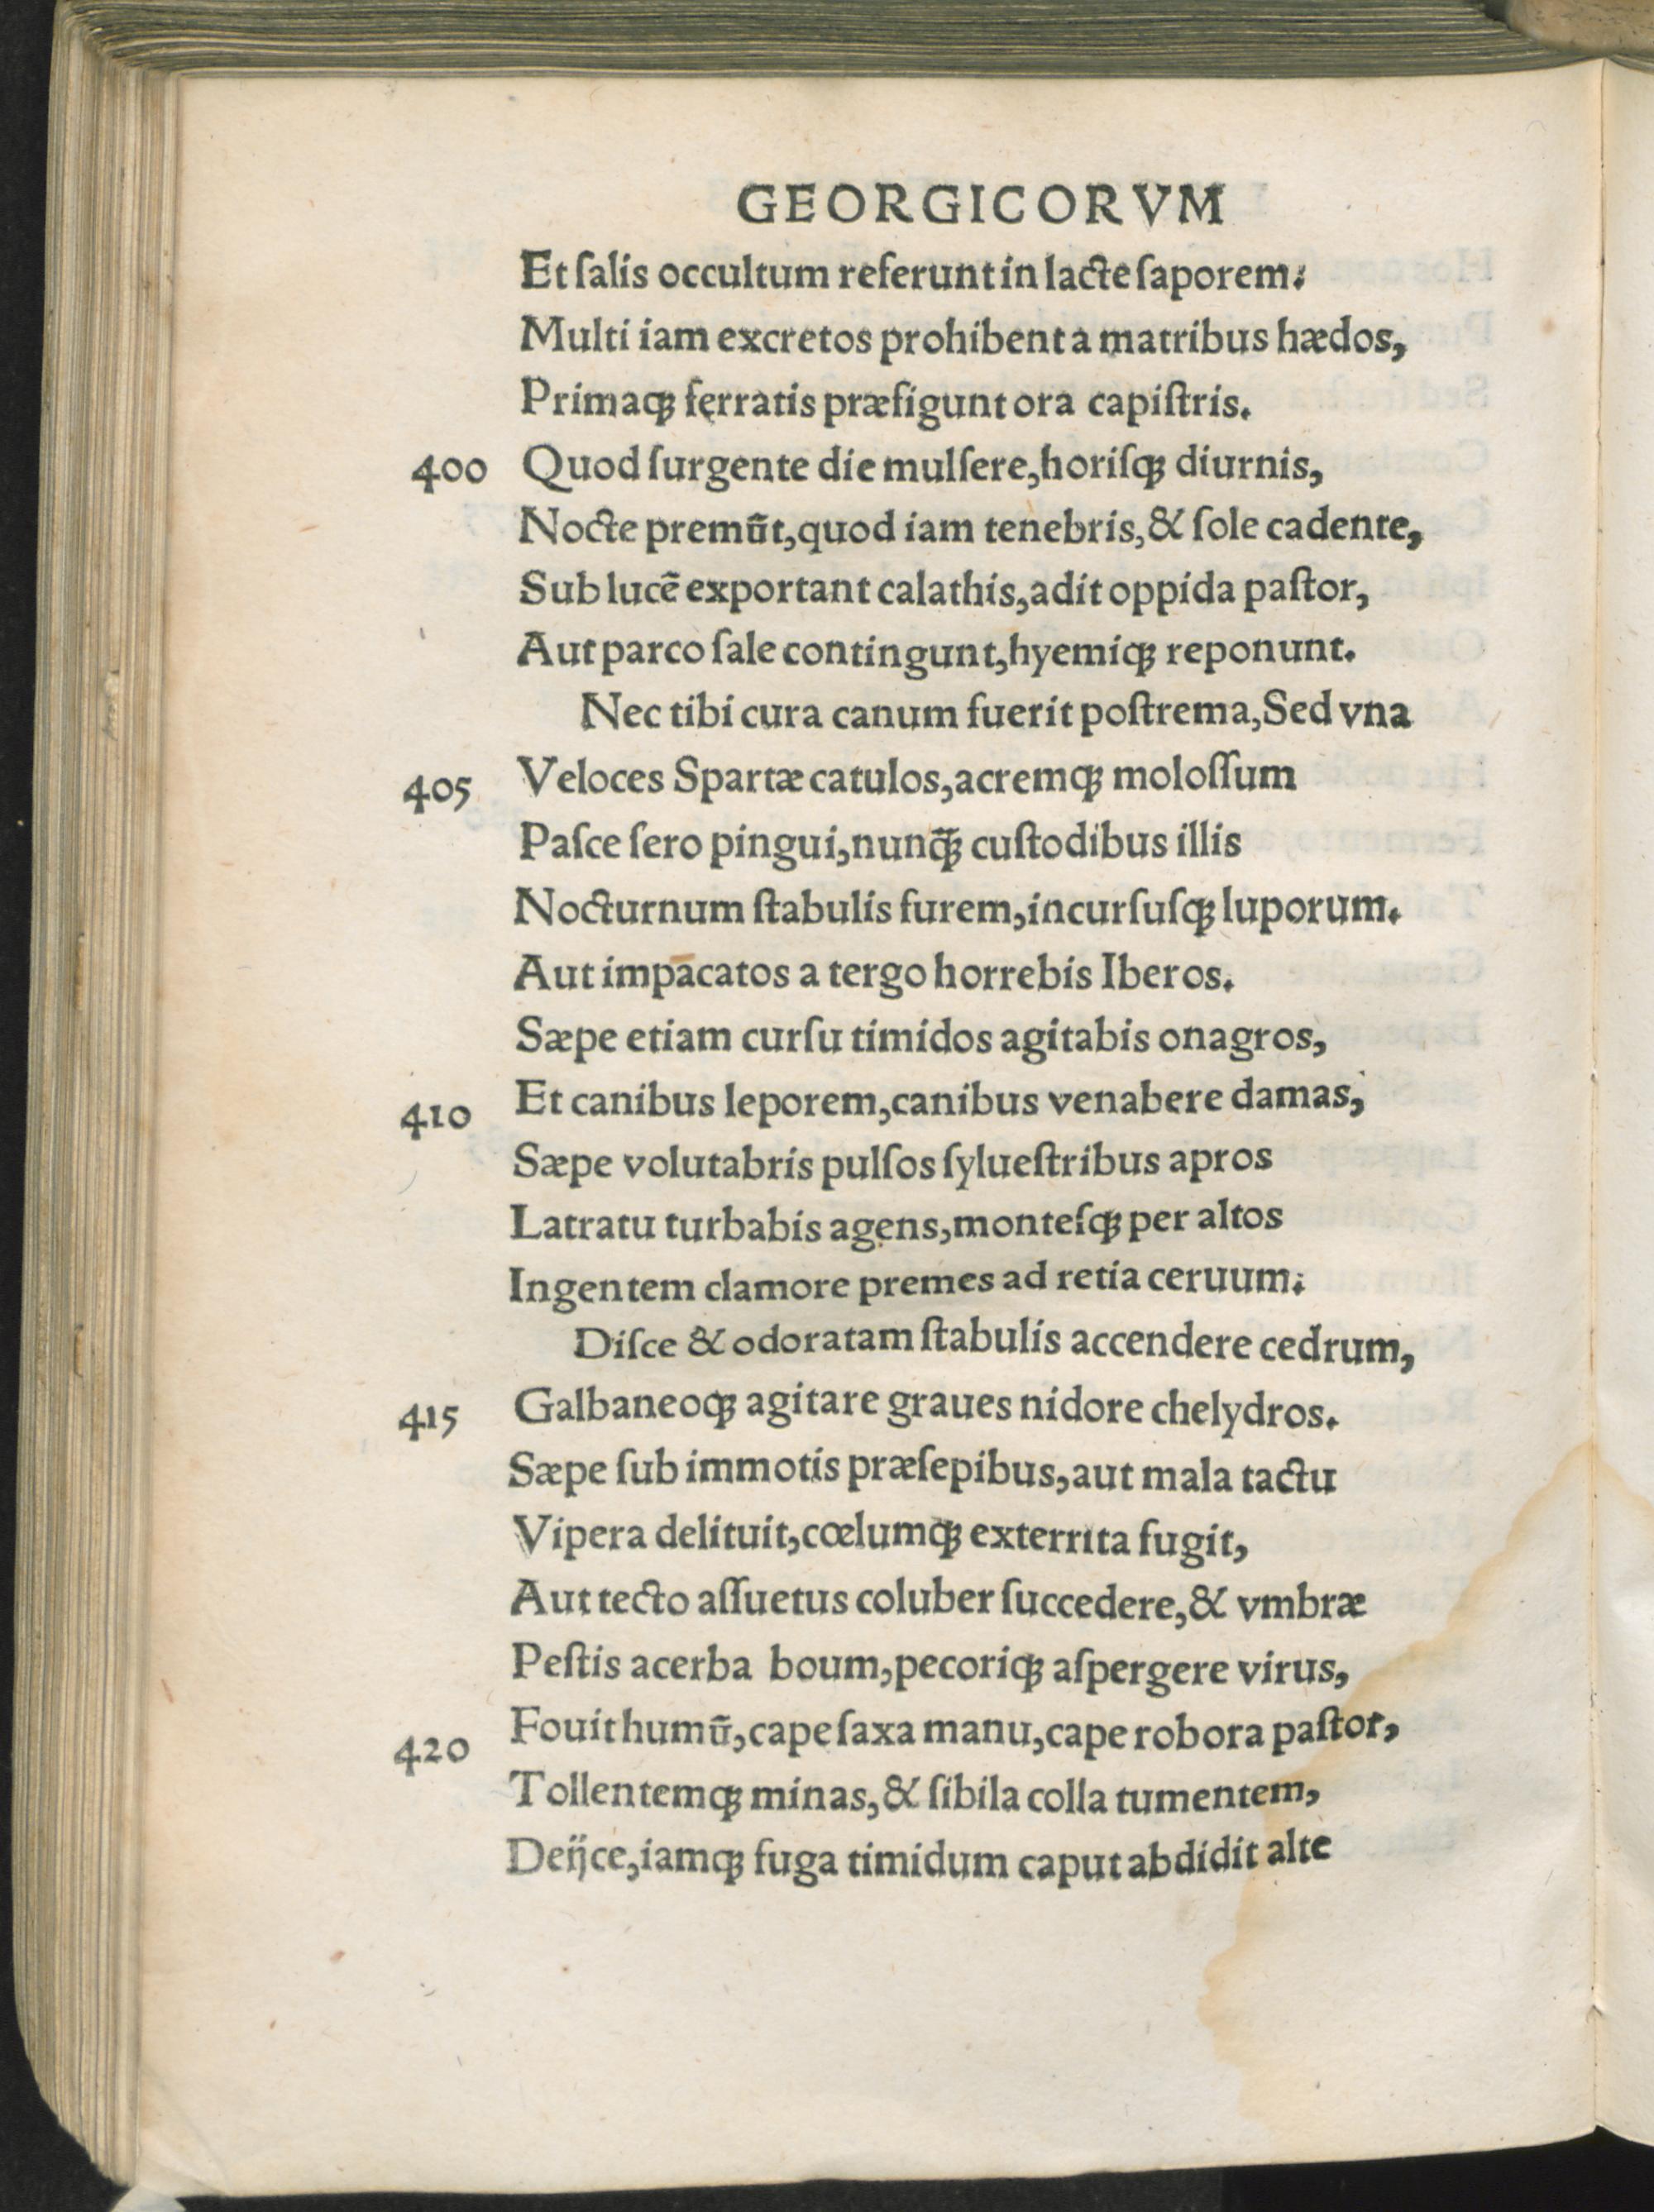 GEORGICORVM
Et ſalis occultum referunt in lacte ſaporem.
Multi iam excretos prohibent a matribus hædos,
Primaqꝫ ferratis præfigunt ora capiſtris.
400 Quod ſurgente die mulſere, horiſqꝫ diurnis,
Nocte premũt, quod iam tenebris, & ſole cadente,
Sub lucẽ exportant calathis, adit oppida paſtor,
Aut parco ſale contingunt, hyemiqꝫ reponunt.
Nec tibi cura canum fuerit poſtrema, Sed vna
405 Veloces Spartæ catulos, acremqꝫ moloſſum
Paſce ſero pingui, nunq̃ꝫ cuſtodibus illis
Nocturnum ſtabulis furem, incurſuſqꝫ luporum.
Aut impacatos a tergo horrebis Iberos.
Sæpe etiam curſu timidos agitabis onagros,
410 Et canibus leporem, canibus venabere damas,
Sæpe volutabris pulſos ſylueſtribus apros
Latratu turbabis agens, monteſqꝫ per altos
Ingentem clamore premes ad retia ceruum.
Diſce & odoratam ſtabulis accendere cedrum,
415 Galbaneoqꝫ agitare graues nidore chelydros.
Sæpe ſub immotis præſepibus, aut mala tactu
Vipera delituit, cœlumqꝫ exterrita fugit,
Aut tecto aſſuetus coluber ſuccedere, & vmbræ
Peſtis acerba boum, pecoriqꝫ aſpergere virus,
420 Fouit humũ, cape ſaxa manu, cape robora paſtor,
Tollentemqꝫ minas, & ſibila colla tumentem,
Deĳce, iamqꝫ fuga timidum caput abdidit alte